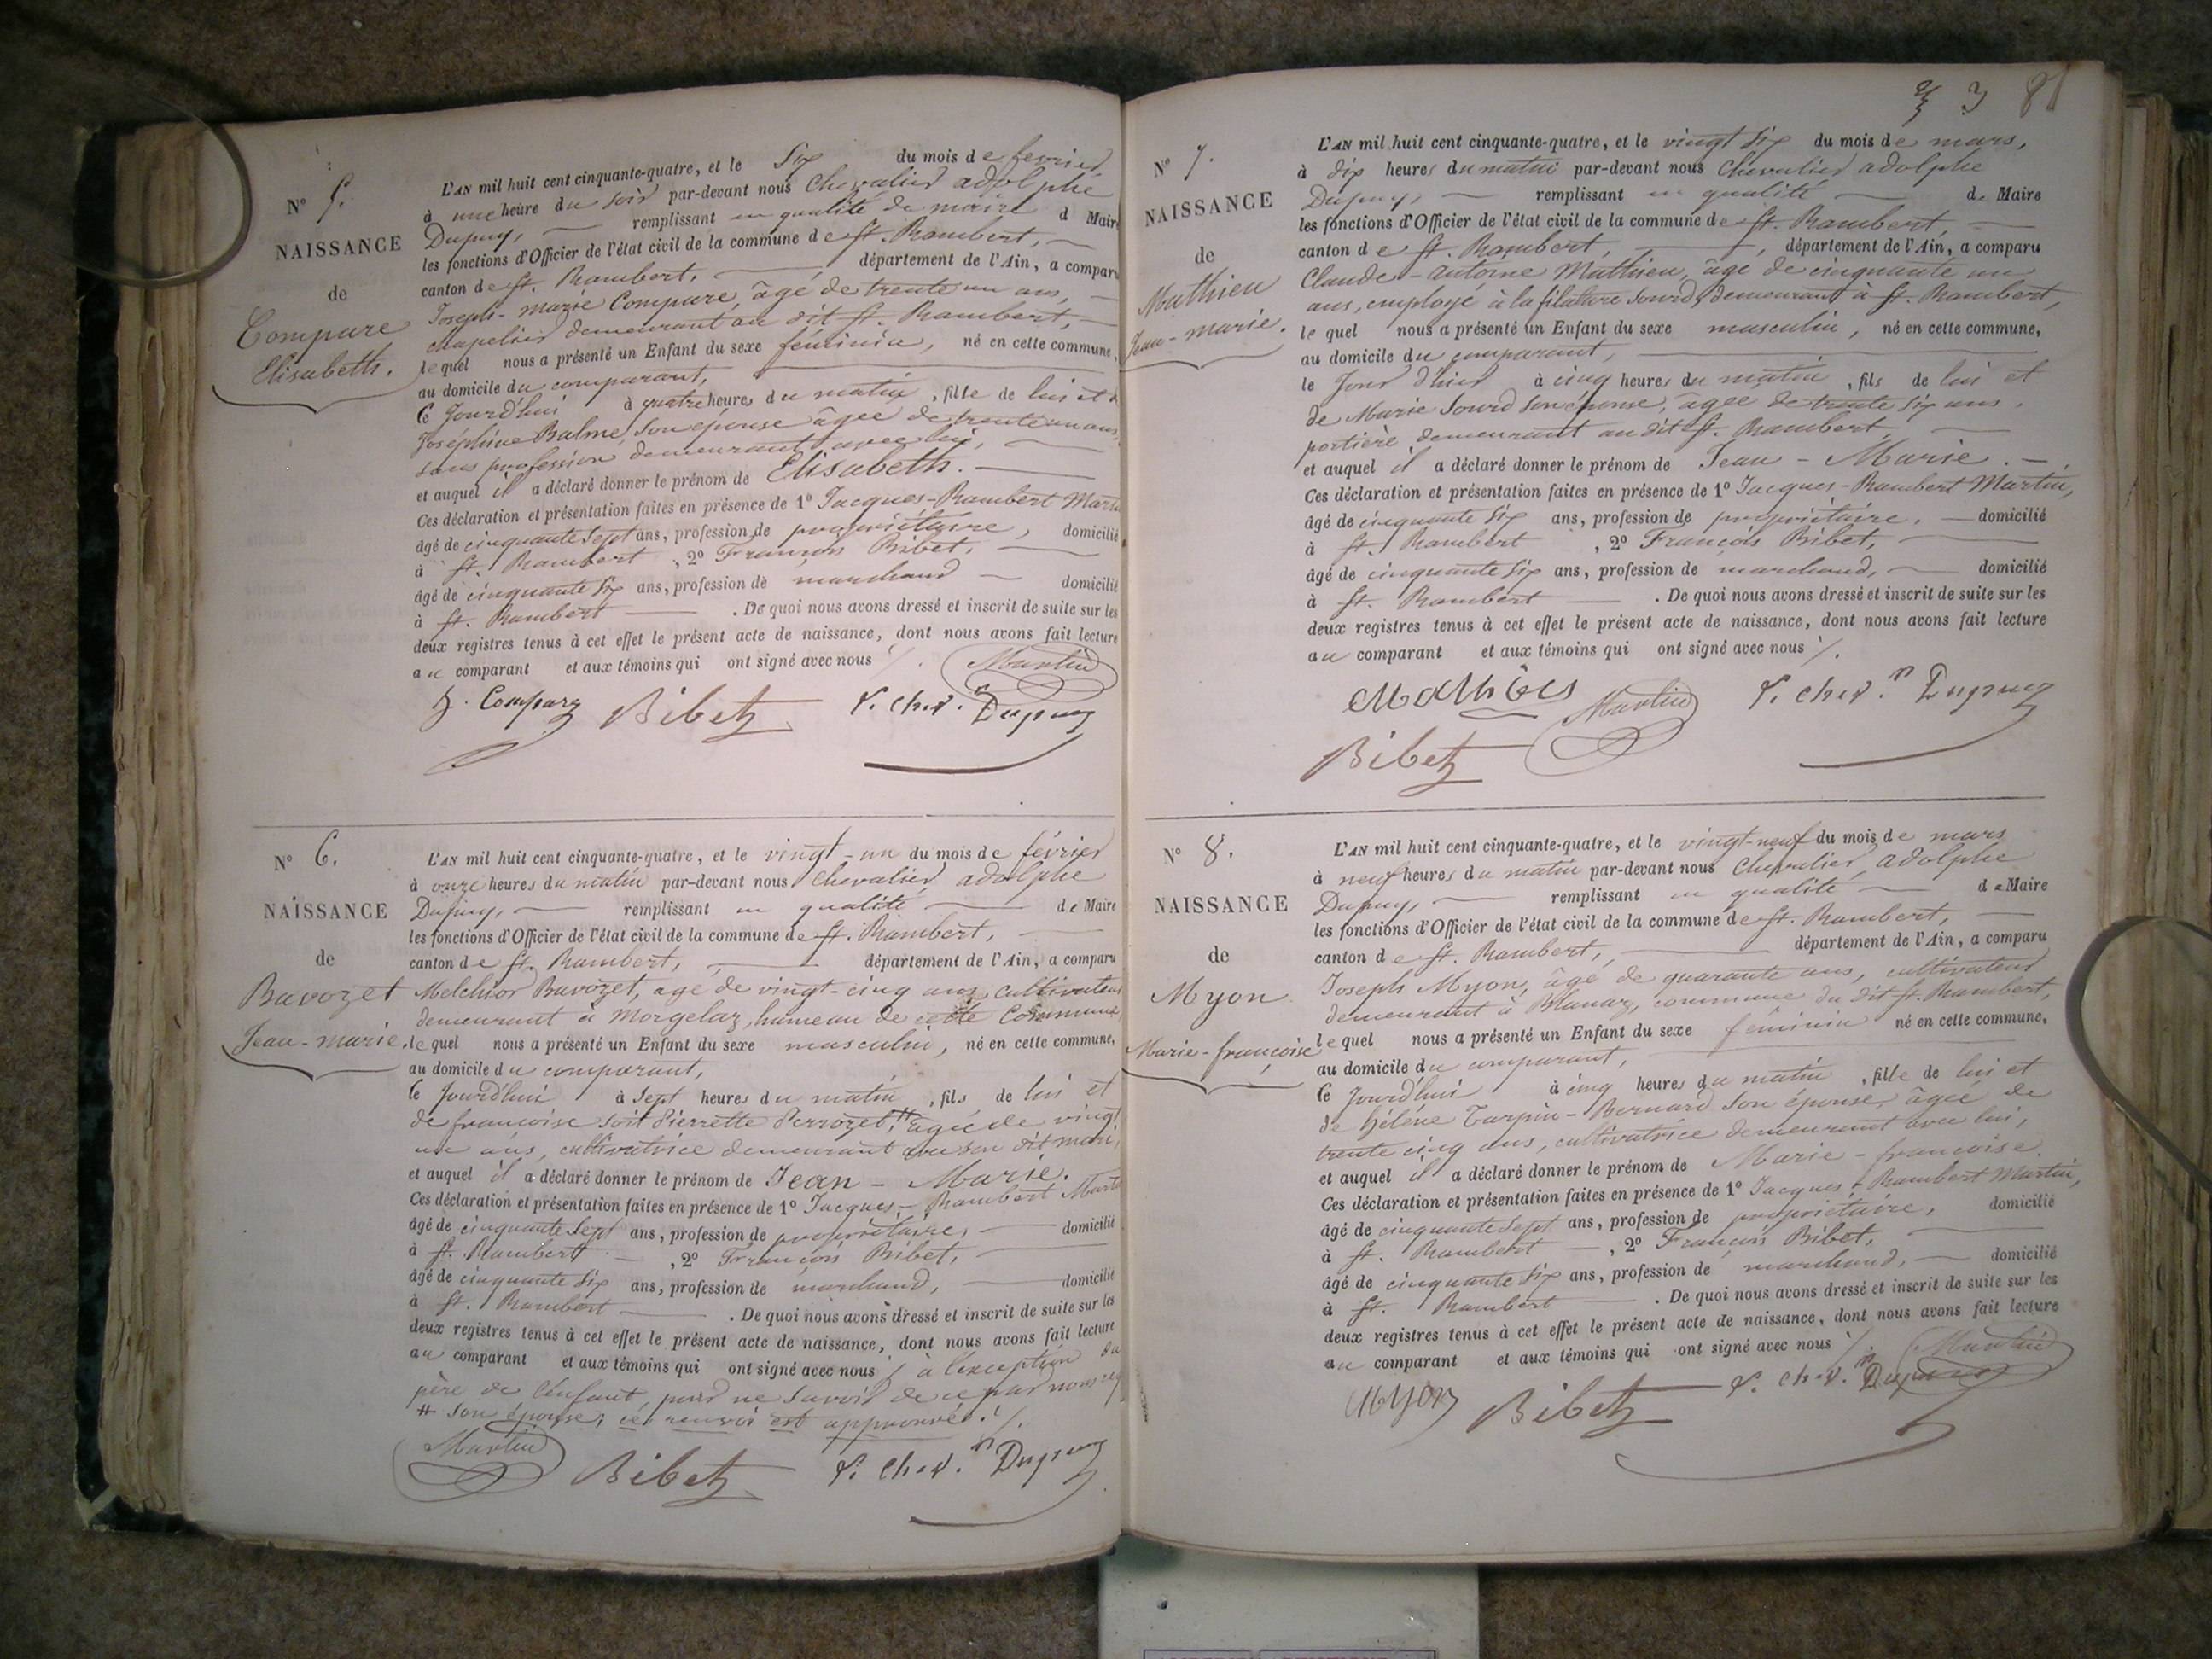 N° 5.
NAISSANCE
de
Compare
Elisabeth.
L'AN mil huit cent cinquante-quatre, et le Six du mois de fevrier
à une heure du soir par-devant nous Chevalier adolphe
Dupuy, remplissant en qualité de maire d Maire
les fonctions d'Officier de l'état civil de la commune de St. Rambert,
canton de St. Rambert, département de l'Ain, a comparu
Joseph-Marie Compare, âgé de trente un ans,
chapelier demeurant au dit St. Rambert,
lequel nous a présenté un Enfant du sexe féminin, né en cette commune,
au domicile du comparant,
Ce Jourd'hui à quatre heures du matin, fille de lui et
Joséphine Balme, son épouse âgée de trente un ans,
sans profession demeurant avec lui,
et auquel il a déclaré donner le prénom de Elisabeth.
Ces déclaration et présentation faites en présence de 1° Jacques-Rambert Marti
âgé de cinquante sept ans, profession de propriétaire, domicilié
à St. Rambert, 2° François Bibet,
âgé de cinquante six ans, profession de marchand domicilié
à St. Rambert. De quoi nous avons dressé et inscrit de suite sur les
deux registres tenus à cet effet le présent acte de naissance, dont nous avons fait lecture
au comparant et aux témoins qui ont signé avec nous ./.
Martin
J. Compare Bibet F. Chev. Dupuy
N° 6.
NAISSANCE
de
Bavozet
Jean-marie.
L'AN mil huit cent cinquante-quatre, et le vingt-un du mois de février
à onze heures du matin par-devant nous Chevalier adolphe
Dupuy, remplissant en qualité de Maire
les fonctions d'Officier de l'état civil de la commune de St. Rambert,
canton de St. Rambert, département de l'Ain, a comparu
Melchior Bavozet, age de vingt-cinq ans, cultivateur
demeurant à Morgelaz, hameau de cette Commune,
lequel nous a présenté un Enfant du sexe masculin, né en cette commune,
au domicile du comparant,
Ce Jourd'hui à Sept heures du matin, fils de lui et
de françoise soit Pierrette Perrozet, # âgée de vingt
un ans, cultivatrice demeurant avec son dit mari,
et auquel il a déclaré donner le prénom de Jean-Marie.
Ces déclaration et présentation faites en présence de 1° Jacques-Rambert Marti
âgé de cinquante Sept ans, profession de propriétaire, domicilié
à St. Rambert, 2° François Bibet,
âgé de cinquante six ans, profession de marchand, domicilié
à St. Rambert. De quoi nous avons dressé et inscrit de suite sur les
deux registres tenus à cet effet le présent acte de naissance, dont nous avons fait lecture
au comparant et aux témoins qui ont signé avec nous à l'exception du
père de l'enfant, pour ne savoir de ce par nous req
# son épouse, ce renvoi est approuvé ./.
Martin Bibet F. Chev. Dupuy
3 81
N° 7.
NAISSANCE
de
Matthieu
Jean-marie.
L'AN mil huit cent cinquante-quatre, et le vingt six du mois de mars,
à dix heures du matin par-devant nous Chevalier adolphe
Dupuy, remplissant en qualité de Maire
les fonctions d'Officier de l'état civil de la commune de St. Rambert,
canton de St. Rambert, département de l'Ain, a comparu
Claude-antoine Matthieu, âgé de cinquante un
ans, employé à la filature Sourd, demeurant à St. Rambert,
le quel nous a présenté un Enfant du sexe masculin, né en cette commune,
au domicile du comparant,
le Jour d'hier à cinq heures du matin, fils de lui et
de Marie Sourd son épouse, âgée de trente six ans,
portière demeurant au dit St. Rambert
et auquel il a déclaré donner le prénom de Jean-Marie.
Ces déclaration et présentation faites en présence de 1° Jacques-Rambert Martin,
âgé de cinquante six ans, profession de propriétaire, domicilié
à St. Rambert, 2° François Bibet,
âgé de cinquante six ans, profession de marchand, domicilié
à St. Rambert. De quoi nous avons dressé et inscrit de suite sur les
deux registres tenus à cet effet le présent acte de naissance, dont nous avons fait lecture
au comparant et aux témoins qui ont signé avec nous ./.
Martin F. Chev. Dupuy
Bibet
N° 8.
NAISSANCE
de
Myon
Marie-françoise
L'AN mil huit cent cinquante-quatre, et le vingt-neuf du mois de mars
à neuf heures du matin par-devant nous Chevalier adolphe
Dupuy, remplissant en qualité de Maire
les fonctions d'Officier de l'état civil de la commune de St. Rambert,
canton de St. Rambert, département de l'Ain, a comparu
Joseph Myon, âgé de quarante ans, cultivateur
demeurant à Blanaz, commune du dit St. Rambert,
lequel nous a présenté un Enfant du sexe féminin né en cette commune,
au domicile du comparant,
Ce Jourd'hui à cinq heures du matin, fille de lui et
de Hélène Turpin-Bornard son épouse, âgée de
trente cinq ans, cultivatrice demeurant avec lui,
et auquel il a déclaré donner le prénom de Marie-françoise.
Ces déclaration et présentation faites en présence de 1° Jacques-Rambert Martin,
âgé de cinquante Sept ans, profession de propriétaire, domicilié
à St. Rambert, 2° François Bibet,
âgé de cinquante six ans, profession de marchand, domicilié
à St. Rambert. De quoi nous avons dressé et inscrit de suite sur les
deux registres tenus à cet effet le présent acte de naissance, dont nous avons fait lecture
au comparant et aux témoins qui ont signé avec nous ./.
Martin
Myon Bibet F. Chev. Dupuy